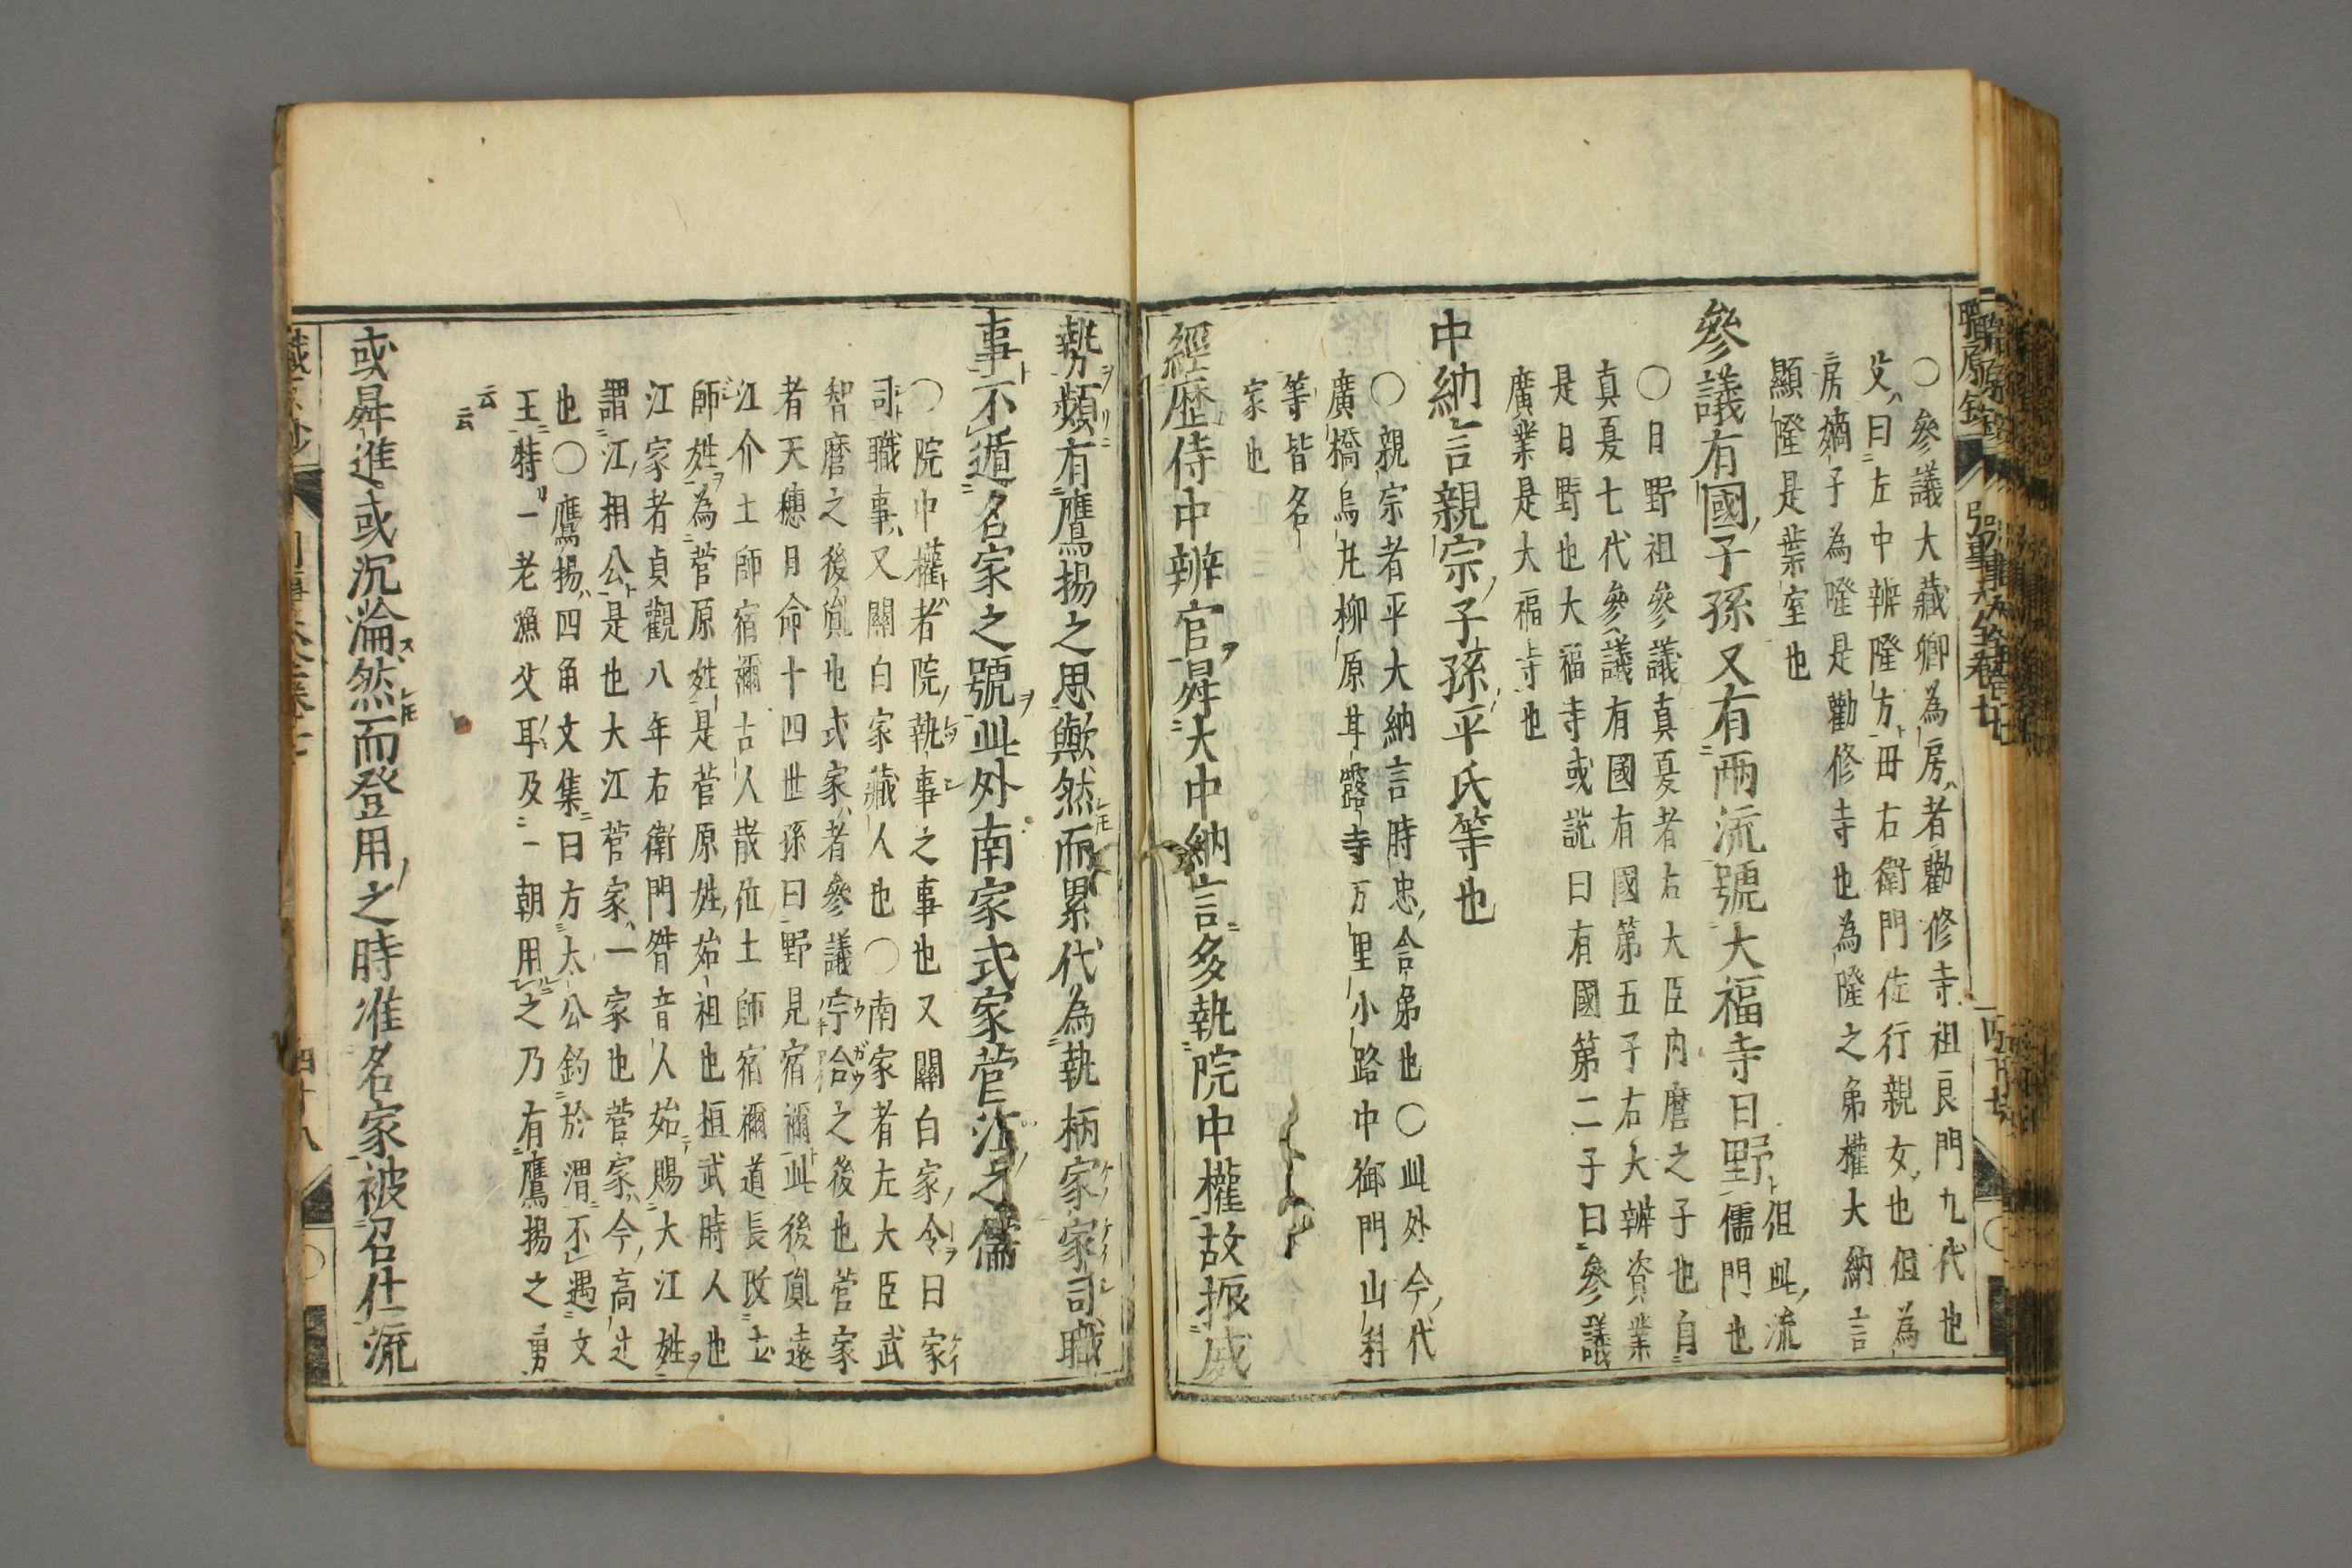 〇參議大藏卿為房者勸修寺祖良門九代也
父曰左中辨隆方毋右衛門佐行親女也但為
房嫡子為隆是勸修寺也為隆之弟權大納言
顯隆是葉室也
參議有國子孫又有兩流號大福寺日野但此流儒門也
〇日野祖參議真夏者右大臣內麿之子也自
真夏七代參議有國有國第五子右大辨資業
是日野也大福寺或說曰有國第二子曰參議
廣業是大福寺也
中納言親宗子孫平氏等也
〇親宗者平大納言時忠舍弟也〇此外今代
廣橋烏丸柳原甘露寺万里小路中御門山科
等皆名
家也
經歷侍中辨官昇大中納言多執院中權故振威
勢頗有鷹揚之思歟然而累代為執柄家家司職
事不遁名家之號此外南家式家菅江之儒
〇院中權者院執事之事也又關白家令曰家
司職事又關白家藏人也〇南家者左大臣武
智麿之後胤也式家者參議宇合之後也菅家
者天穗日命十四世孫曰野見宿禰此後胤遠
江介土師宿禰古人散位土師宿禰道長改土
師姓為菅原姓是菅原姓始祖也桓武時人也
江家者貞觀八年右衛門督音人始賜大江姓
謂江相公是也大江菅家一家也菅家今高辻
也〇鷹揚四角文集曰方太公釣於渭不遇文
王特一老漁父耳及一朝用之乃有鷹揚之勇
云云
或昇進或沉淪然而登用之時准名家被召仕流
四十八